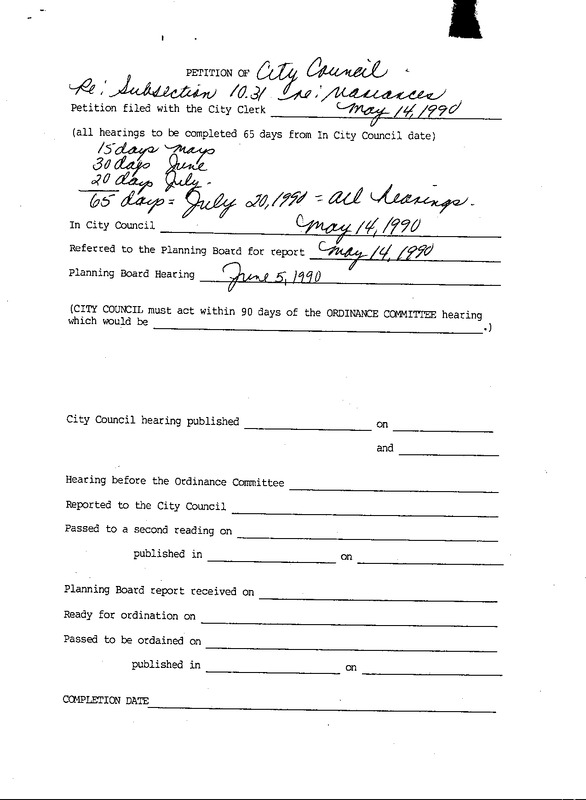 PETITION OF City Council
Re: Subsection 10.31 re: Variances
Petition filed with the City Clerk May 14, 1990
(all hearings to be completed 65 days from In City Council date)
15 days Mays
30 days June
20 days July.
65 days = July 20, 1990 = all hearings.
In City Council May 14, 1990
Referred to the Planning Board for report May 14, 1990
Planning Board Hearing June 5, 1990
(CITY COUNCIL must act within 90 days of the ORDINANCE COMMITTEE hearing
which would be .)
City Council hearing published on
and
Hearing before the Ordinance Committee
Reported to the City Council
Passed to a second reading on
published in on
Planning Board report received on
Ready for ordination on
Passed to be ordained on
published in on
COMPLETION DATE